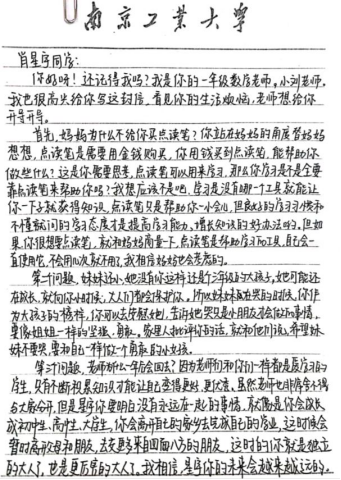 南京工业大学
肖星宇同学:
你好呀!还记得我吗?我是你的一年级数学老师,小刘老师。
我也很高兴给你写这封信,看见你的生活烦恼,老师想给你
开导开导。
首先,妈妈为什么不给你买点读笔?你站在妈妈的角度替妈妈
想想,点读笔是需要用金钱购买,你用钱买到点读笔,能帮助你
做些什么?这是你需要思考,点读笔可以用来学习,那么你学习是不是全要
靠点读笔来帮助你吗?我想应该不是吧,学习是没有哪一个工具就能让
你一下子就获得知识,点读笔只是帮助你一小会儿,但良好的学习习惯和
不懂就问的学习态度才是提高学习能力、增长知识的好办法哟,但如
果你很想要点读笔,就和妈妈商量一下,点读笔是帮助学习的工具,自己会一
直使用它,不会用几次就不用了,我相信妈妈也会考虑的。
第二个问题,妹妹还小,她没有你这样还是个三年级的大孩子,她可能还
在成长,就向你小时候,大人们都会保护你,所以妹妹在哭的时候,你作
为大孩子的榜样,你可以去安慰她,告诉她哭只是小朋友才会做的事情,
要像姐姐一样的坚强、勇敢。发现人批评你的话,就和他们说,希望妹
妹不要哭,要和自己一样做一个勇敢的小女孩。
第三个问题,老师什么年后会回去?因为老师们和你们一样都是爱学习的
学生,只有不断积累知识才能让自己变得更好、更优秀,虽然老师也非常舍不得
与大家分开,但是星宇你要明白没有永远在一起的事情,就像是你会成长
成初中生、高中生、大学生,你会离开自己的家乡去完成自己的学业,这时候会
暂时离开母和朋友,去交更多来自四面八方的朋友,这时的你就是独立
的大人了,也是更厉害的大人了。我相信,星宇你的未来会越来越远的。